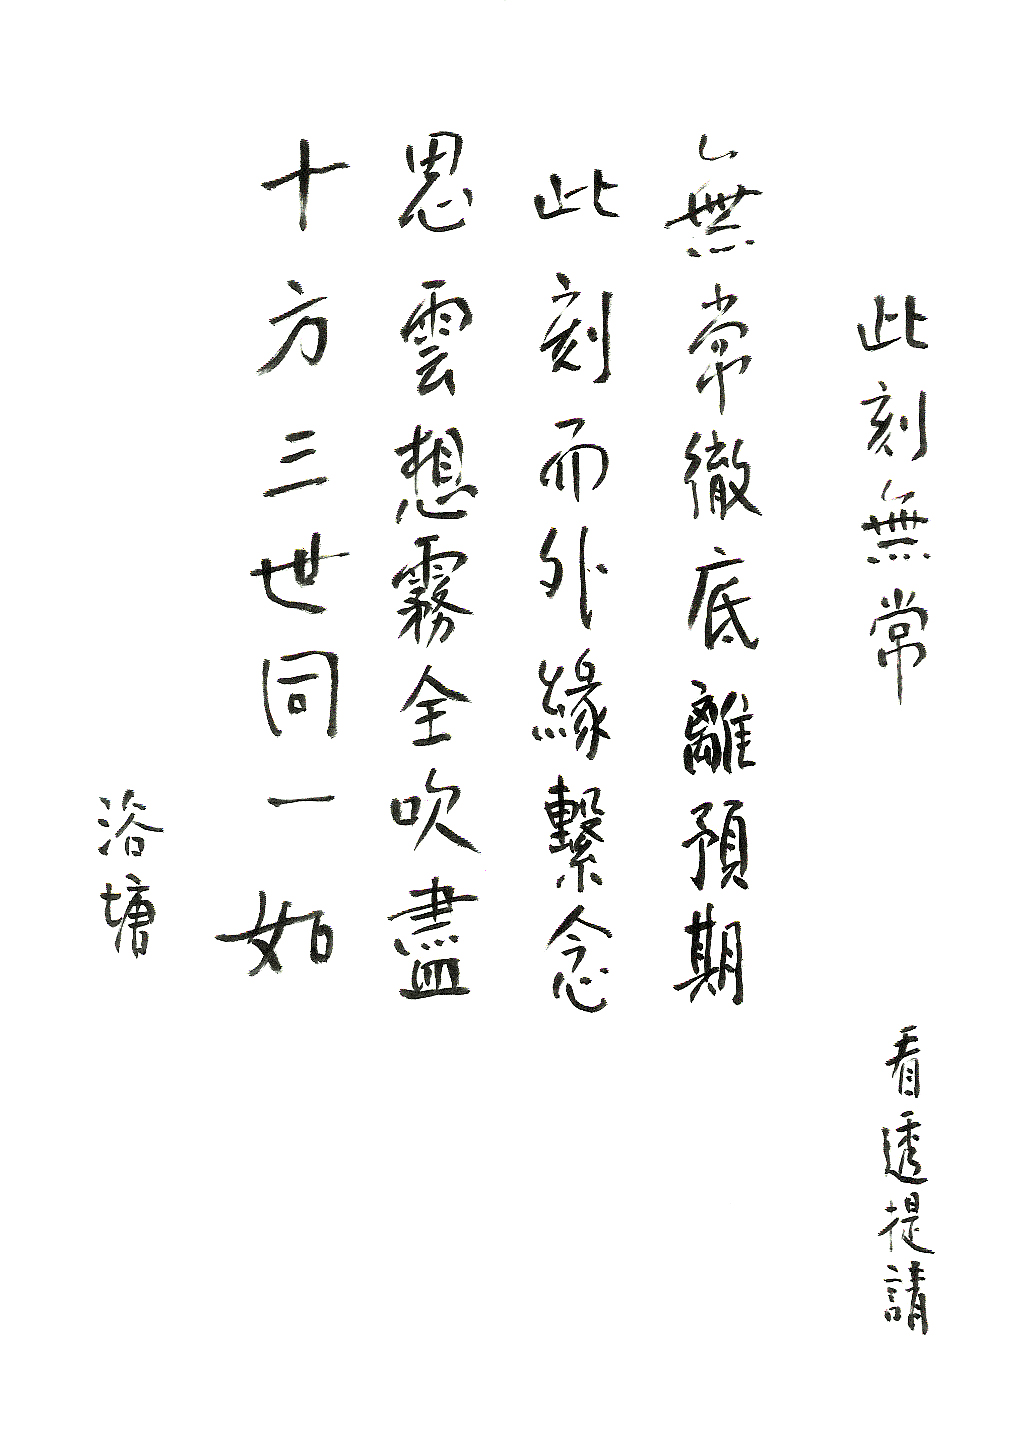 此刻無常
看透提請
無常徹底離預期
此刻而外緣繫念
思雲想霧全吹盡
十方三世同一如
浴塘